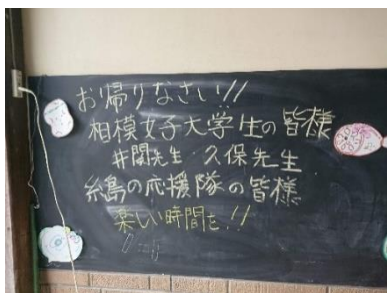 お帰りなさい!!
相模女子大学生の皆様
井関先生 久保先生
糸島の応援隊の皆様
楽しい時間を!!